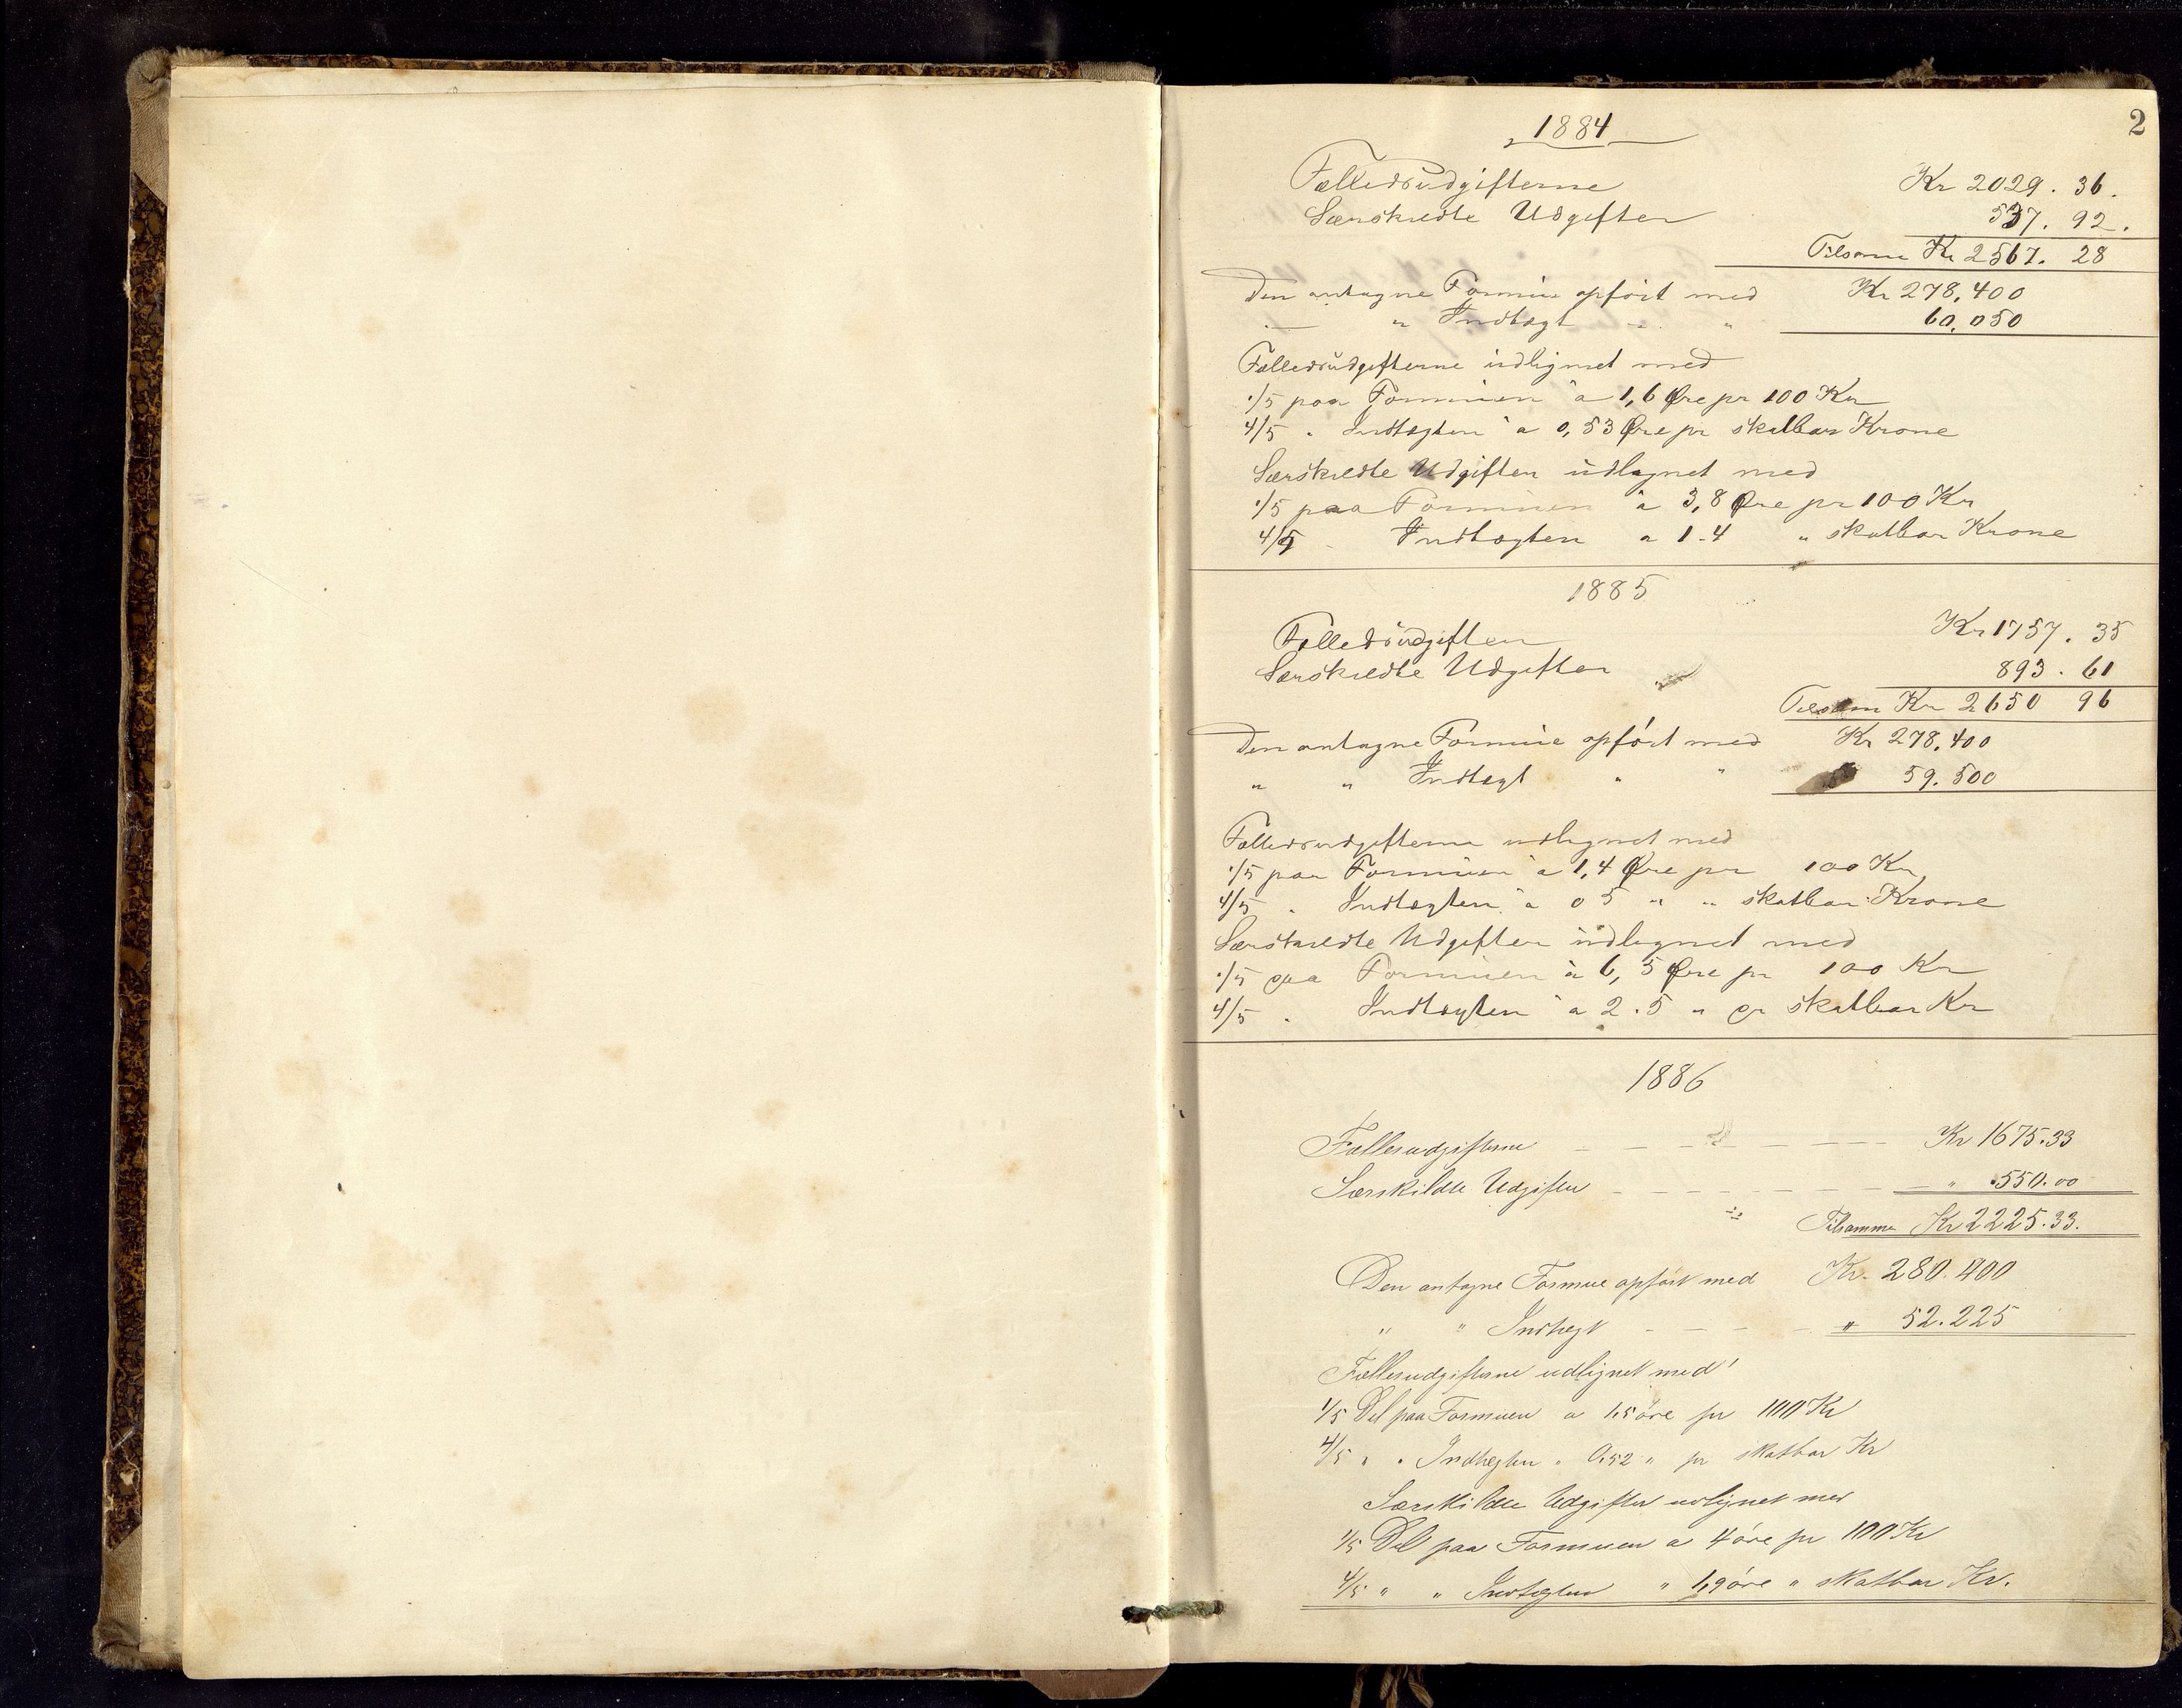 2
1884
Fælledsudgifterne Kr 2029. 36.
Særskildte Udgifter 537. 92.
Tilsamm Kr 2567. 28
Den antagne Formue opført med Kr 278,400
— " Indtægt - " 60,050
Fælledsudgifterne udlignet med
1/5 paa Formuen à 1,6 Øre pr 100 Kr
4/5 " Indtægten à 0,53 Øre pr skatbar Krone
Særskildte Udgifter udlignet med
1/5 paa Formuen à 3,8 Øre pr 100 Kr
4/5 - Indtægten a 1.4 " skatbar Krone
1885
Fælledsudgifter Kr 1757. 35
Særskildte Udgifter 893. 61
Tilsam Kr 2650 96
Den antagne Formue opført med Kr 278,400
" " Indtægt " " 59.500
Fælledsudgifterne udlignet med
1/5 paa Formuen à 1,4 Øre pr 100 Kr
4/5 " Indtægten à 0 5 " " skatbar Krone
Særskildte Udgifter udlignet med
1/5 paa Formuen à 6,5 Øre pr 100 Kr
4/5 " Indtægten à 2.5 " pr skatbar Kr
1886
Fællesudgifterne — — — — — Kr 1675.33
Særskildte Udgifter — — — — — " 550.00
Tilsamme Kr 2225.33.
Den antagne Formue opført med Kr. 280.400
" " Indtægt - - - " 52.225
Fællesudgifterne udlignet med
1/5 Del paa Formuen a 1,5 öre pr 100 Kr
4/5 " " Indtægten " 0,52 " pr skatbar Kr
Særskildte Udgifter udlignet med
1/5 Del paa Formuen a 4 öre pr 100 Kr
4/5 " " Indtægten " 1,9 öre " skatbar Kr.